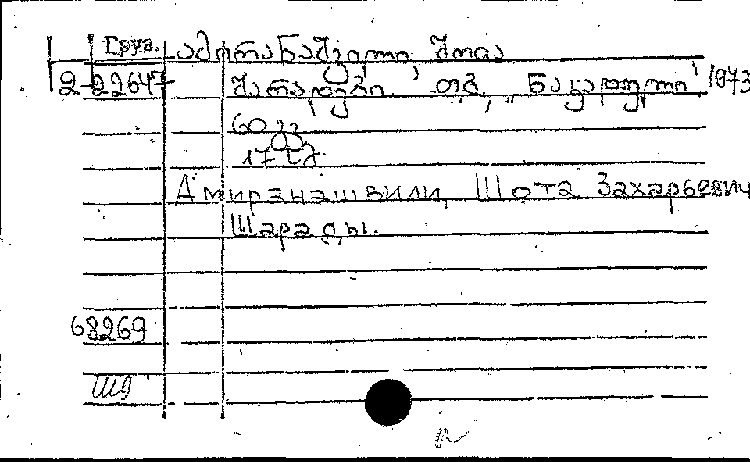 Груз. ამირანაშვილი, შოთა
2-22647 შარადები. თბ., „ნაკადული" 1973
60 გვ
17 კ.
Амиранашвили, Шота Захарьевич
Шарады.
68269